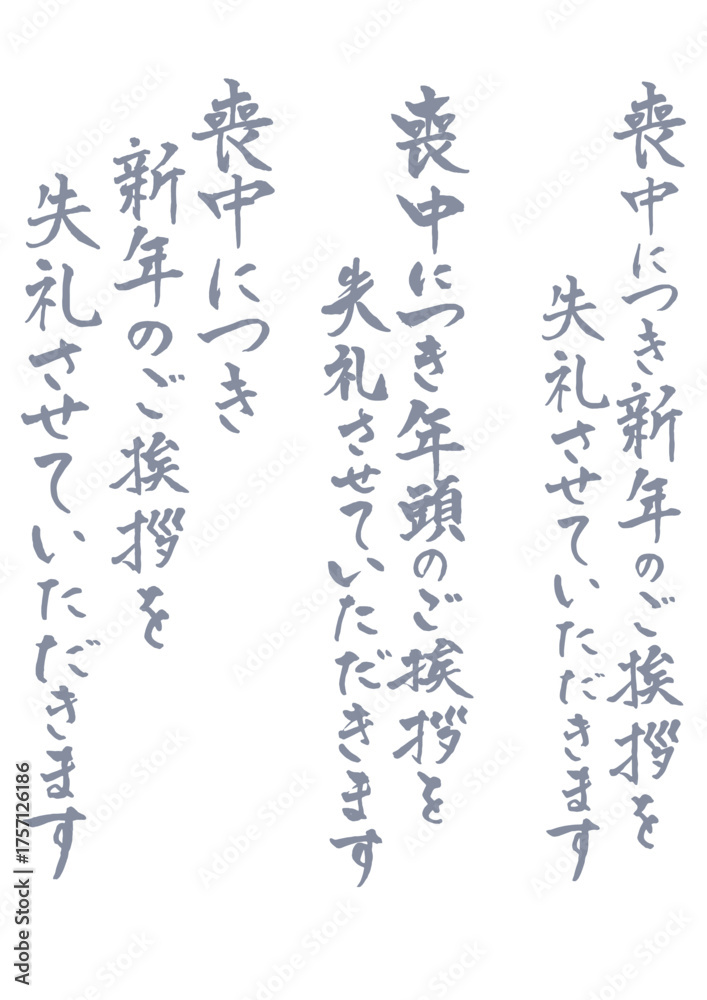 喪中につき新年のご挨拶を
失礼させていただきます
喪中につき年頭のご挨拶を
失礼させていただきます
喪中につき
新年のご挨拶を
失礼させていただきます
Adobe Stock | #1757126186